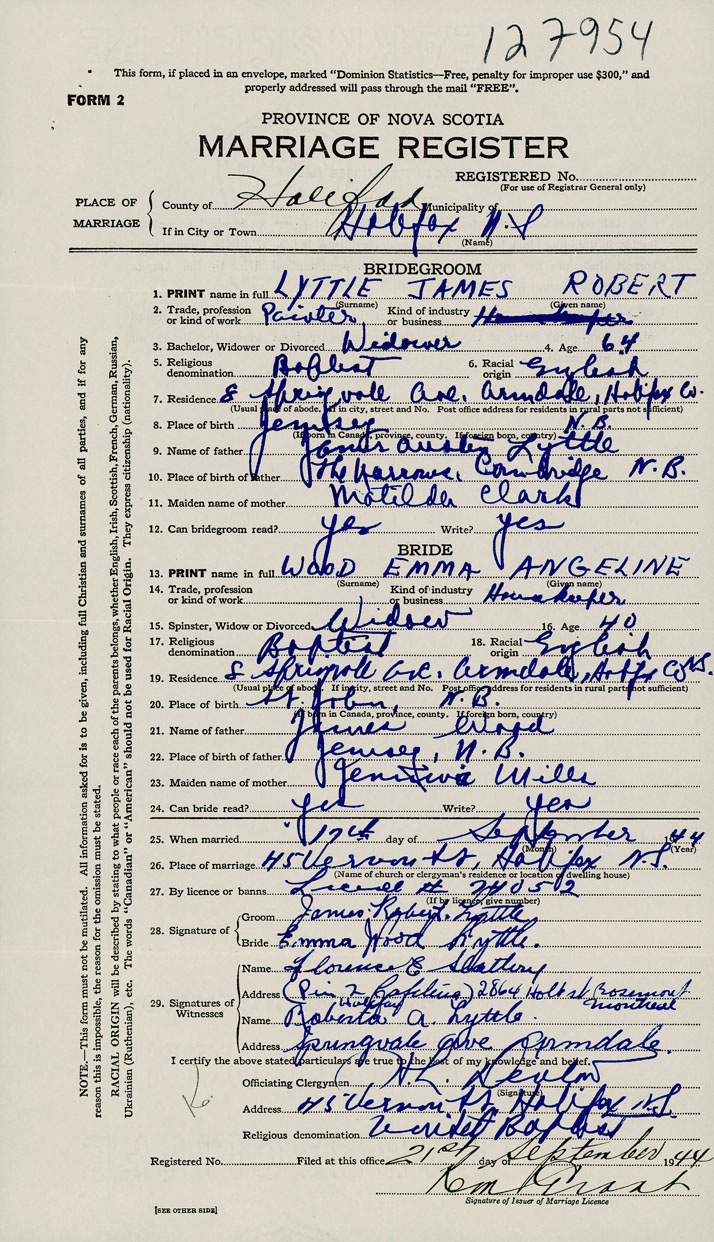 127954
This form, if placed in an envelope, marked "Dominion Statistics—Free, penalty for improper use $300," and
properly addressed will pass through the mail "FREE".
FORM 2
PROVINCE OF NOVA SCOTIA
MARRIAGE REGISTER
REGISTERED No.
(For use of Registrar General only)
PLACE OF MARRIAGE
County of Halifax Municipality of
If in City or Town Halifax N.S
(Name)
BRIDEGROOM
1. PRINT name in full LYTTLE JAMES ROBERT
(Surname) (Given name)
2. Trade, profession or kind of work Painter Kind of industry or business
3. Bachelor, Widower or Divorced Widower 4. Age 64
5. Religious denomination Baptist 6. Racial origin English
7. Residence 8 Springvale Ave. Armdale, Halifax Co.
(Usual place of abode. If in city, street and No. Post office address for residents in rural parts not sufficient)
8. Place of birth Jemseg N.B.
(If born in Canada, province, county. If foreign born, country)
9. Name of father James Austen Lyttle
10. Place of birth of father The Narrows, Cambridge N.B.
11. Maiden name of mother Matilda Clark
12. Can bridegroom read? yes Write? yes
BRIDE
13. PRINT name in full WOOD EMMA ANGELINE
(Surname) (Given name)
14. Trade, profession or kind of work Kind of industry or business Housekeeper
15. Spinster, Widow or Divorced Widow 16. Age 40
17. Religious denomination Baptist 18. Racial origin English
19. Residence 8 Springvale Ave. Armdale, Halifax Co N.S.
(Usual place of abode. If in city, street and No. Post office address for residents in rural parts not sufficient)
20. Place of birth St. John, N.B.
(If born in Canada, province, county. If foreign born, country)
21. Name of father James Wood
22. Place of birth of father Jemseg, N.B.
23. Maiden name of mother Mills
24. Can bride read? yes Write? yes
25. When married 17th day of September 1944
(Month) (Year)
26. Place of marriage 45 Vernon St, Halifax N.S.
(Name of church or clergyman's residence or location of dwelling house)
27. By licence or banns License # 24052
(If by licence, give number)
28. Signature of
Groom James Robert Lyttle
Bride Emma Wood Lyttle.
29. Signatures of Witnesses
Name Florence E Slattery
Address 2864 Holt st Rosemont Montreal
Halifax
Name Roberta A Lyttle
Address Springvale Ave Armdale
I certify the above stated particulars are true to the best of my knowledge and belief.
Officiating Clergyman
(Signature)
Address 45 Vernon St Halifax N.S.
Religious denomination United Baptist
Registered No. Filed at this office 21st day of September 1944
Grant
Signature of Issuer of Marriage Licence
[SEE OTHER SIDE]
NOTE.—This form must not be mutilated. All information asked for is to be given, including full Christian and surnames of all parties, and if for any
reason this is impossible, the reason for the omission must be stated.
RACIAL ORIGIN will be described by stating to what people or race each of the parents belongs, whether English, Irish, Scottish, French, German, Russian,
Ukrainian (Ruthenian), etc. The words "Canadian" or "American" should not be used for Racial Origin. They express citizenship (nationality).